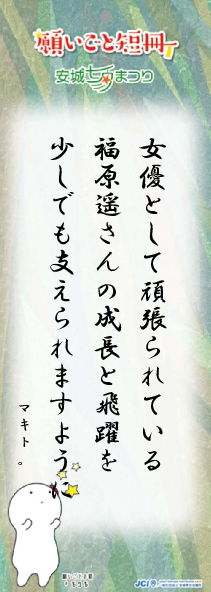 願いごと短冊
安城七夕まつり
女優として頑張られている
福原遥さんの成長と飛躍を
少しでも支えられますように
マキト。
JCI